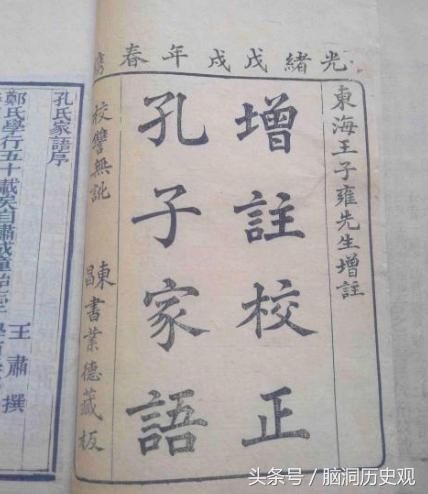 光緒戊戌年春
東海王子雍先生增註
增註校正
孔子家語
校讐無訛
東昌書業德藏板
孔氏家語序
王肅撰
鄭氏學行五十載矣自肅成童始
头条号/脑洞历史观